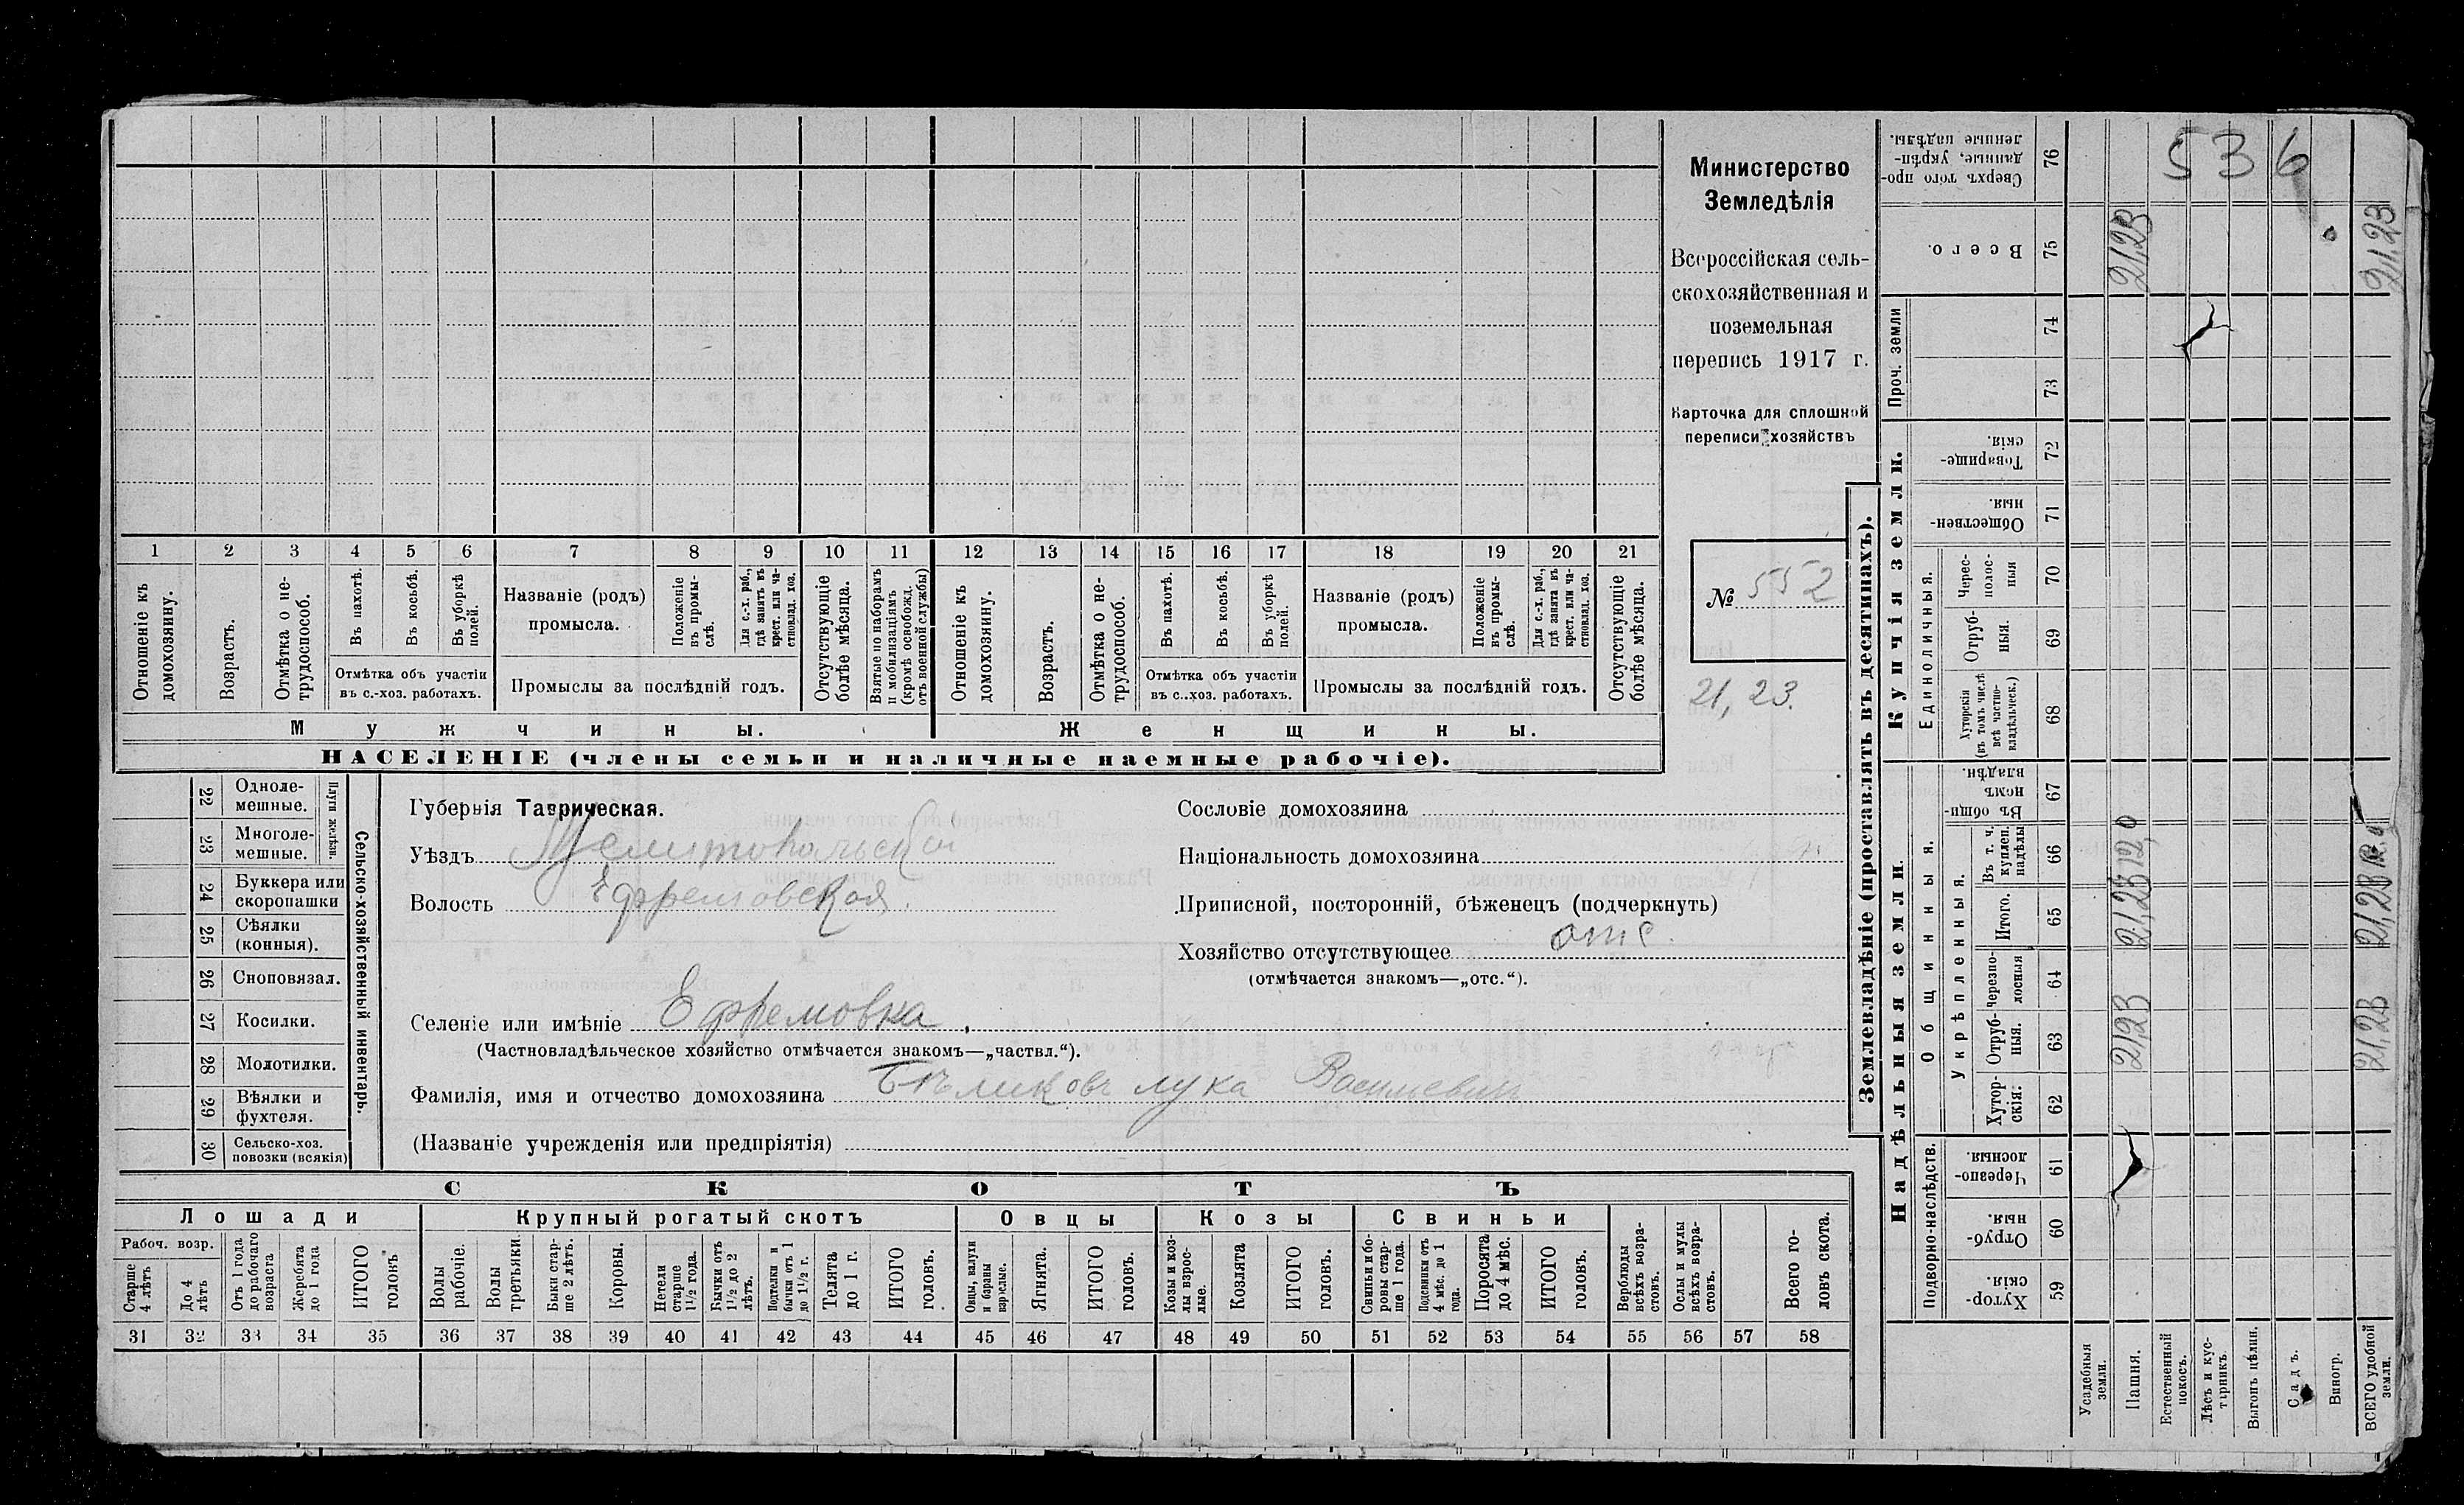 Министерство
Земледѣлія
Всероссійская сель-
скохозяйственная и
поземельная
перепись 1917 г.
Карточка для сплошной
переписи хозяйствъ
№ 552
21,23.
1 2 3 4 5 6 7 8 9 10 11 12 13 14 15 16 17 18 19 20 21
Отношеніе къ домохозяину.
Возрастъ.
Отмѣтка о не-трудоспособ.
Въ пахотѣ.
Въ косьбѣ.
Въ уборкѣ полей.
Отмѣтка объ участіи
въ с.-хоз. работахъ.
Названіе (родъ)
промысла.
Положеніе въ промы-слѣ.
Для с.-х. раб., гдѣ занятъ въ крест. или ча-стновлад. хоз.
Промыслы за послѣдній годъ.
Отсутствующіе болѣе мѣсяца.
Взятые по наборамъ и мобилизаціямъ (кромѣ освобожд. отъ военной службы)
Отношеніе къ домохозяину.
Возрастъ.
Отмѣтка о не-трудоспособ.
Въ пахотѣ.
Въ косьбѣ.
Въ уборкѣ полей.
Отмѣтка объ участіи
въ с..хоз. работахъ.
Названіе (родъ)
промысла.
Положеніе въ промы-слѣ.
Для с.-х. раб., гдѣ занята въ крест. или ча-стновлад. хоз.
Промыслы за послѣдній годъ.
Отсутствующіе болѣе мѣсяца.
Мужчины.
Женщины.
НАСЕЛЕНІЕ (члены семьи и наличные наемные рабочіе).
22 Одноле-мешные.
23 Многоле-мешные.
Плуги желѣзн.
24 Буккера или скоропашки
25 Сѣялки (конныя).
26 Сноповязал.
27 Косилки.
28 Молотилки.
29 Вѣялки и фухтеля.
30 Сельско-хоз. повозки (всякія)
Сельско-хозяйственный инвентарь.
Губернія Таврическая.
Уѣздъ Мелитопольской
Волость Ефремовская.
Селеніе или имѣніе Ефремовка.
(Частновладѣльческое хозяйство отмѣчается знакомъ—„частвл.“).
Фамилія, имя и отчество домохозяина Бѣликовъ лука Васильевичъ
(Названіе учрежденія или предпріятія)
Сословіе домохозяина
Національность домохозяина
Приписной, посторонній, бѣженецъ (подчеркнуть)
Хозяйство отсутствующее отс.
(отмѣчается знакомъ—„отс.“).
СКОТЪ
Лошади
Крупный рогатый скотъ
Овцы
Козы
Свиньи
Рабоч. возр.
Старше 4 лѣтъ
До 4 лѣтъ
Отъ 1 года до рабочаго возраста
Жеребята до 1 года
ИТОГО головъ
Волы рабочіе.
Волы третьяки.
Быки стар-ше 2 лѣтъ.
Коровы.
Нетели старше 1½ года.
Бычки отъ 1½ до 2 лѣтъ.
Подтелки и бычки отъ 1 до 1½ г.
Телята до 1 г.
ИТОГО головъ.
Овцы, валухи и бараны взрослые.
Ягнята.
ИТОГО головъ.
Козы и коз-лы взрос-лые.
Козлята
ИТОГО головъ.
Свиньи и бо-ровы стар-ше 1 года.
Подсвинки отъ 4 мѣс. до 1 года.
Поросята до 4 мѣс.
ИТОГО головъ.
Верблюды всѣхъ возра-стовъ.
Ослы и мулы всѣхъ возра-стовъ.
Всего го-ловъ скота.
31 32 33 34 35 36 37 38 39 40 41 42 43 44 45 46 47 48 49 50 51 52 53 54 55 56 57 58
Землевладѣніе (проставлять въ десятинахъ).
Надѣльныя земли.
Купчія земли.
Проч. земли
Подворно-наслѣдств.
Общинныя.
Укрѣпленныя.
Единоличныя.
59 Хутор-скія.
60 Отруб-ныя.
61 Черезпо-лосныя.
62 Хутор-скія:
63 Отруб-ныя.
64 Черезпо-лосныя
65 Итого.
66 Въ т. ч. куплен. надѣлы
67 Въ общин-номъ владѣн.
68 Хуторскія (въ томъ числѣ всѣ частно-владѣльческ.)
69 Отруб-ныя.
70 Черес-полос-ныя
71 Обществен-ныя.
72 Товарище-скія.
73
74
75 Всего.
76 Сверхъ того про-данные, укрѣп-ленные надѣлы.
536
Усадебныя земли.
Пашня.
21,23 21,23 12,0 21,23
Естественный покосъ.
Лѣсъ и кус-тарникъ.
Выгонъ цѣлин.
Садъ.
Виногр.
ВСЕГО удобной земли.
21,23 21,23 12,0 21,23